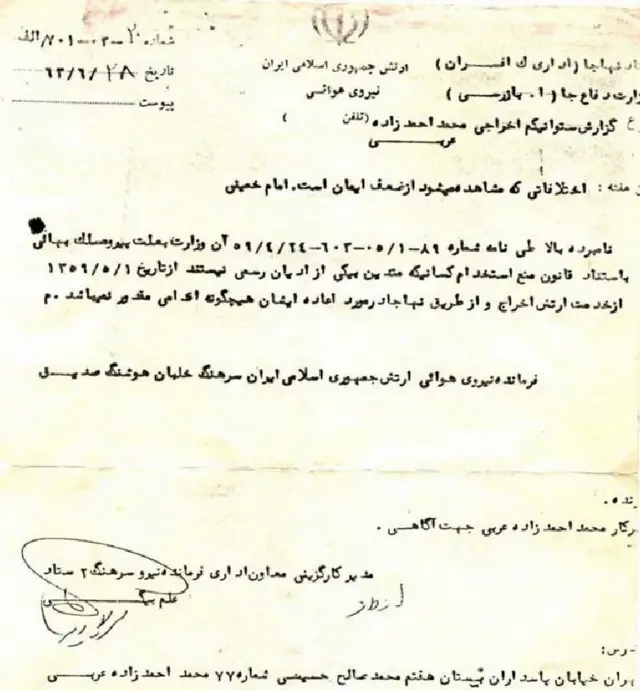 شماره ۲۰-۰۳-۷۰۱/الف
تاریخ ۶۳/۶/۲۸
پیوست
ارتش جمهوری اسلامی ایران
نیروی هوائی
نهاجا (اداری ك افسران)
وزارت دفاع جا (۰۱ بازرسی)
گزارش ستوانیکم اخراجی محمد احمد زاده (تلفن )
عربی
هفته : اختلافاتی که مشاهده میشود ازضعف ایمان است. امام خمینی
نامبرده بالا طی نامه شماره ۸۹-۰۵/۱-۶۰۳-۵۹/۴/۲۴ آن وزارت بعلت پیرو مسلك بهائی
باستناد قانون منع استخدام کسانیکه متدین بیکی از ادیان رسمی نیستند ازتاریخ ۱۳۵۹/۵/۱
ازخدمت ارتش اخراج و از طریق نهاجا درمورد اعاده ایشان هیچگونه اقدامی مقدور نمیباشد .م
فرمانده نیروی هوائی ارتش جمهوری اسلامی ایران سرهنگ خلبان هوشنگ صدیق
سرکار محمد احمد زاده عربی جهت آگاهی .
مدیر کارگزینی معاون اداری فرمانده نیرو سرهنگ ۲ ستاد
علم بیگی
از طرف
خیابان پاسداران نیستان هفتم محمد صالح حسینی شماره ۷۷ محمد احمد زاده عربی